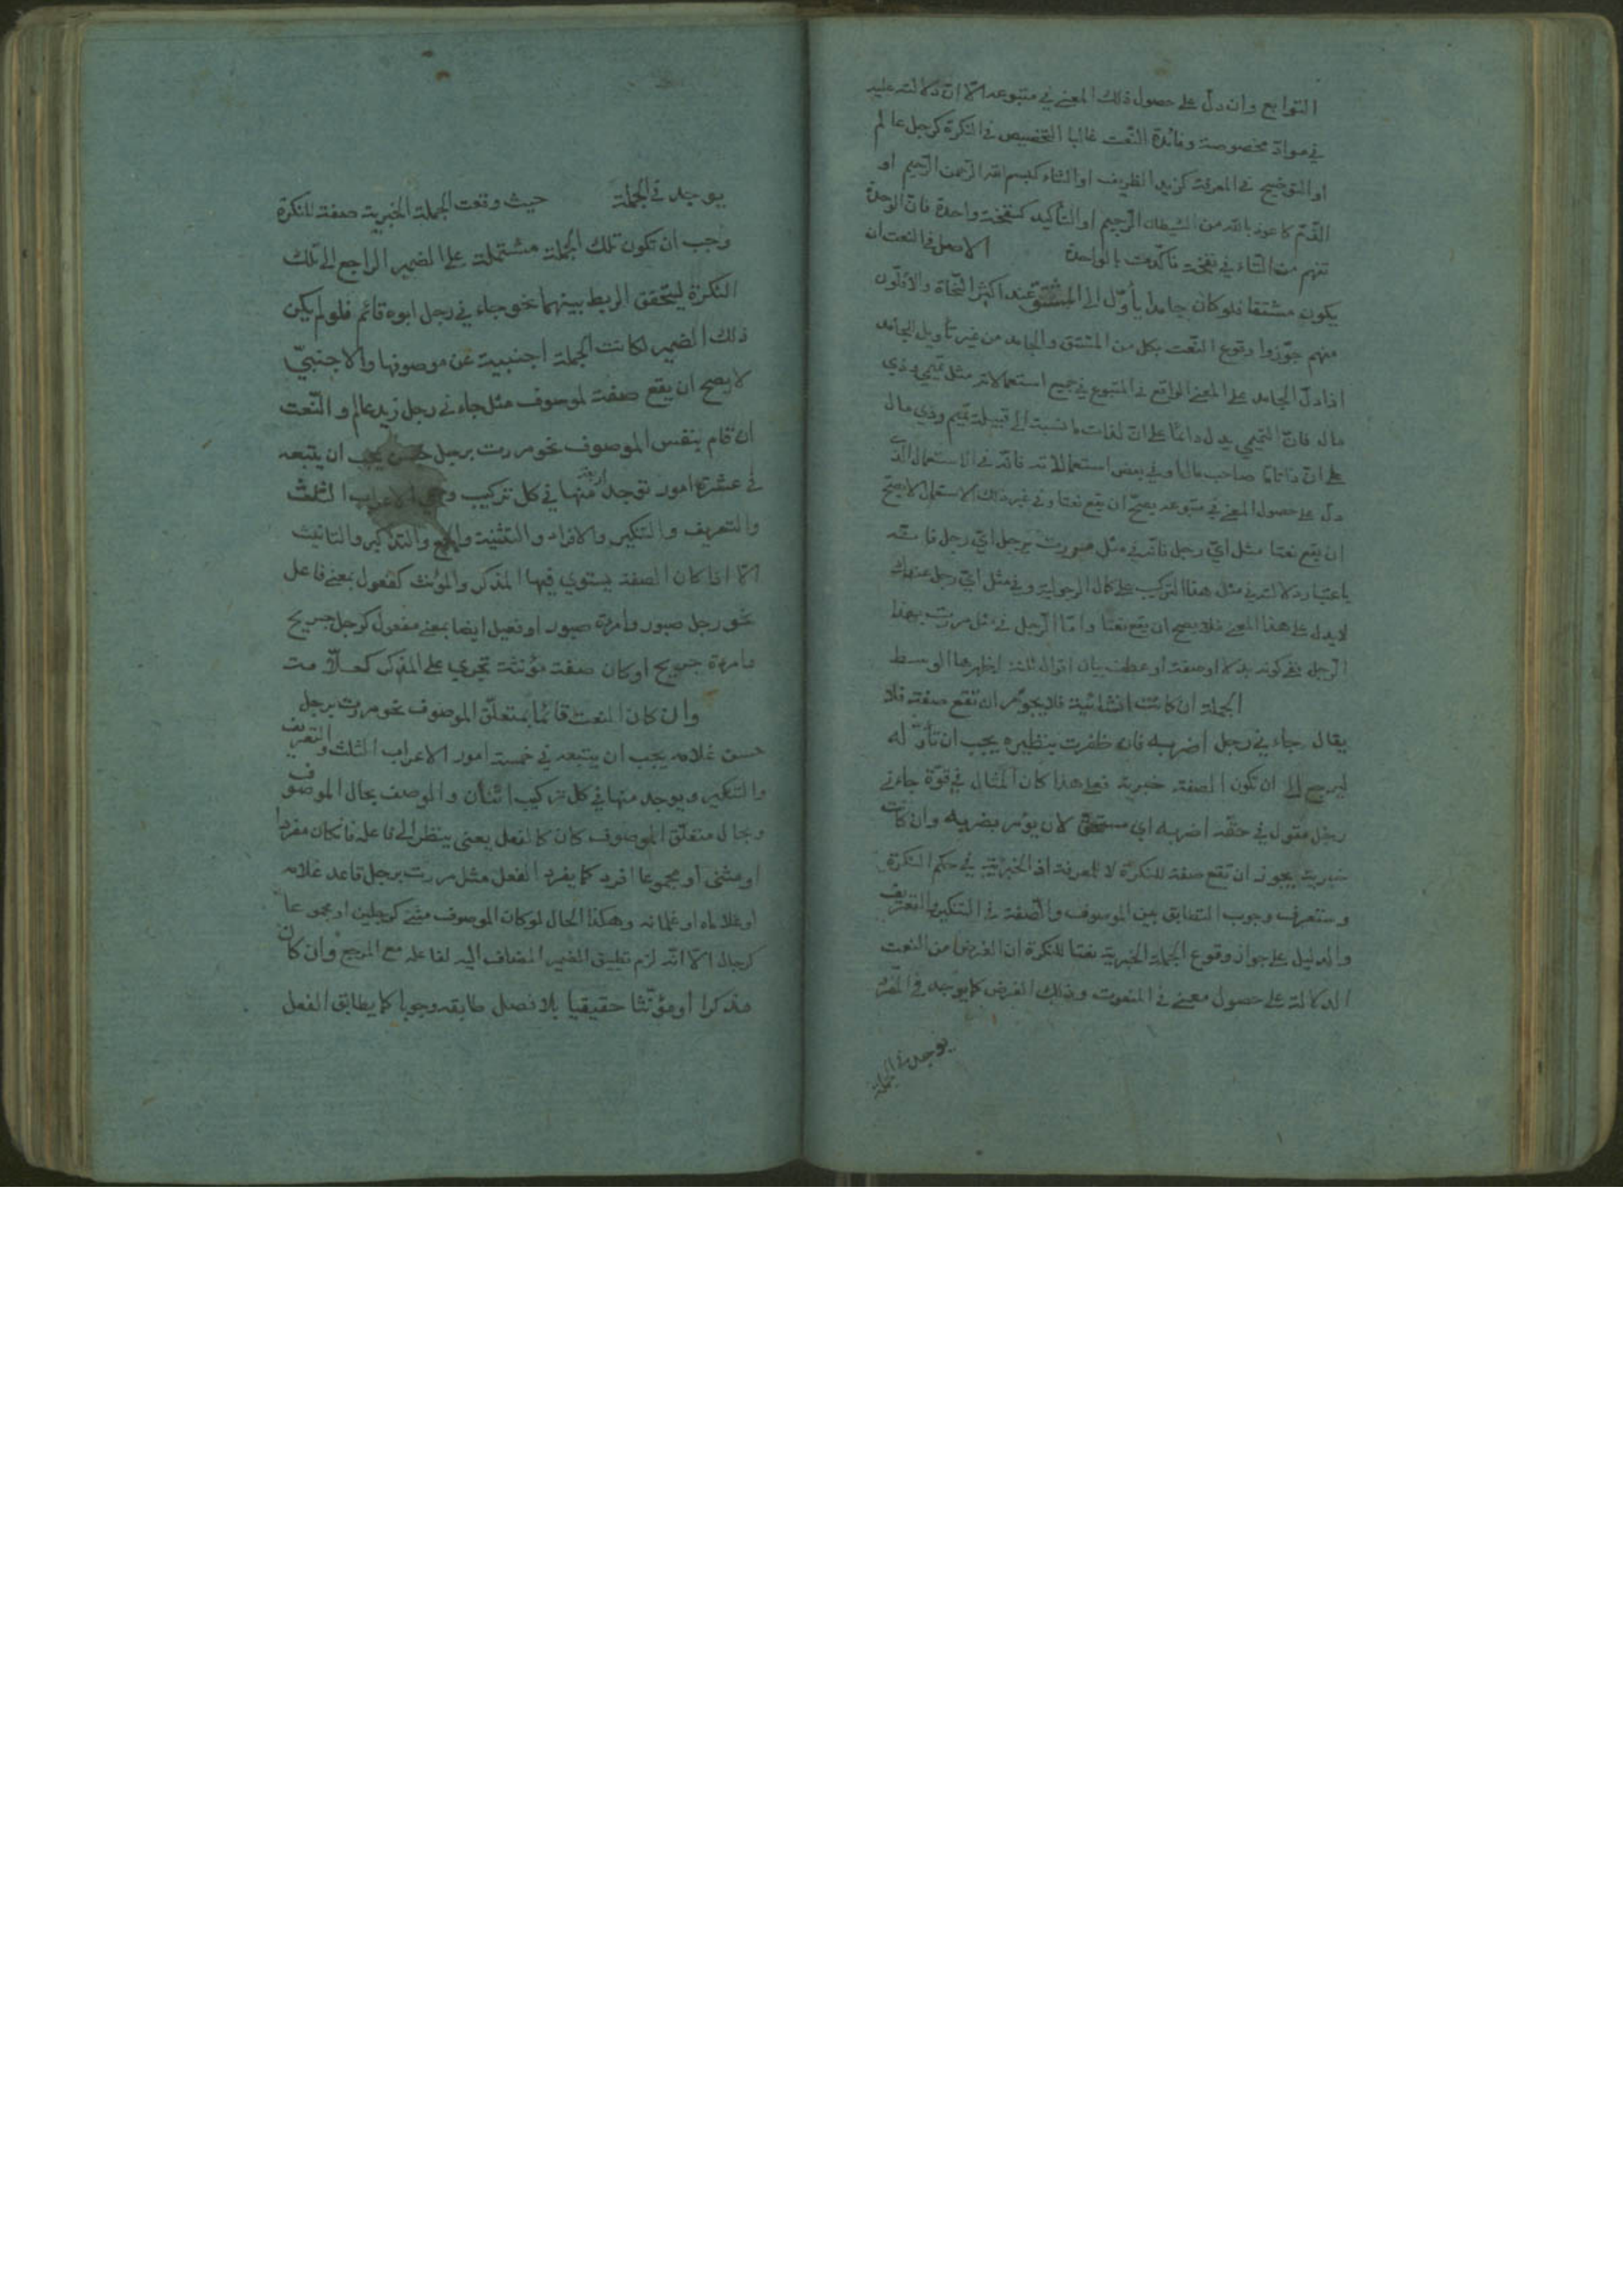 التوابع وان دلّ على حصول ذلك المعنى في متبوعه الا انّ دلالته عليه
في موادّ مخصوصة وفائدة النّعت غالبا التخصيص في النكرة كرجل عالم
او التوضيح في المعرفة كزيد الظريف او الثناء كبسم الله الرّحمن الرّحيم او
الذّم كاعوذ بالله من الشيطان الرّجيم او التأكيد كنفخة واحدة فانّ الوحدة
تفهم من التاء في نفخة فاكّدت بالواحدة الاصل في النعت ان
يكون مشتقا فلو كان جامدا يأوّل الى المشتقّ عند اكثر النّحاة والاقلّون
منهم جوّزوا وقوع النّعت بكل من المشتق والجامد من غير تأويل الجامد
اذا دلّ الجامد على المعنى الواقع في المتبوع في جميع استعمالاته مثل تميمي وذي
مال فانّ التميمي يدل دائما على انّ لذات ما نسبة الى قبيلة تميم وذي مال
على انّ ذاتا ما صاحب مال او في بعض استعمالاته فانّه في الاستعمال الّذي
دلّ على حصول المعنى في متبوعه يصحّ ان يقع نعتا وفي غير ذلك الاستعمال لا يصحّ
ان يقع نعتا مثل ايّ رجل فانّه في مثل مررت برجل ايّ رجل
باعتبار دلالته في مثل هذا التركيب على كمال الرجولية وفي مثل ايّ رجل عندك
لا يدل على هذا المعنى فلا يصح ان يقع نعتا وامّا الرّجل في مثل مررت بهذا
الرّجل ففي كونه بدلا او صفة او عطف بيان اقوال ثلثة اظهرها الوسط
الجملة ان كانت انشائية فلا يجوز ان تقع صفة فلا
يقال جاءني رجل اضربه فان ظفرت بنظيره يجب ان تأوّله
ليرجع الى ان تكون الصفة خبرية فعلى هذا كان المثال في قوّة جاءني
رجل مقول في حقّه اضربه اي مستحق لان يؤمر بضربه وان كانت
خبرية يجوز ان تقع صفة للنكرة لا للمعرفة اذ الخبرية في حكم النكرة
وستعرف وجوب التطابق بين الموصوف والصّفة في التنكير والتعريف
والدليل على جواز وقوع الجملة الخبرية نعتا للنكرة ان الغرض من النعت
الدلالة على حصول معنى في المنعوت وذلك الغرض كما يوجد في المفرد
يوجد في الجملة
يوجد في الجملة حيث وقعت الجملة الخبرية صفة للنكرة
وجب ان تكون تلك الجملة مشتملة على الضمير الراجع الى تلك
النكرة ليتحقق الربط بينهما نحو جاءني رجل ابوه قائم فلو لم يكن
ذلك الضمير لكانت الجملة اجنبية عن موصوفها والاجنبيّ
لا يصح ان يقع صفة لموصوف مثل جاءني رجل زيد عالم والنّعت
ان قام بنفس الموصوف نحو مررت برجل حسن يجب ان يتبعه
في عشرة امور توجد اربعة منها في كل تركيب وهي الاعراب الثلث
والتعريف والتنكير والافراد والتثنية والجمع والتذكير والتانيث
الّا اذا كان الصفة يستوي فيها المذكر والمؤنث كفعول بمعنى فاعل
نحو رجل صبور وامرءة صبور او فعيل ايضا بمعنى مفعول كرجل جريح
وامرءة جريح او كان صفة مؤنثة تجري على المذكر كعلّامة
وان كان النعت قائما بمتعلّق الموصوف نحو مررت برجل
حسن غلامه يجب ان يتبعه في خمسة امور الاعراب الثلث والتعريف
والتنكير ويوجد منها في كل تركيب اثنان والوصف بحال الموصوف
وبحال متعلّق الموصوف كان كالفعل يعنى ينظر الى فاعله فان كان مفردا
او مثنى أو مجموعا افرد كما يفرد الفعل مثل مررت برجل قاعد غلامه
او غلاماه او غلمانه وهكذا الحال لو كان الموصوف مثنى كرجلين او مجموعا
كرجال الّا انّه لزم تطبيق الضمير المضاف اليه لفاعله مع المرجع وان كان
مذكرا أو مؤنّثا حقيقيا بلا فصل طابقه وجوبا كما يطابق الفعل